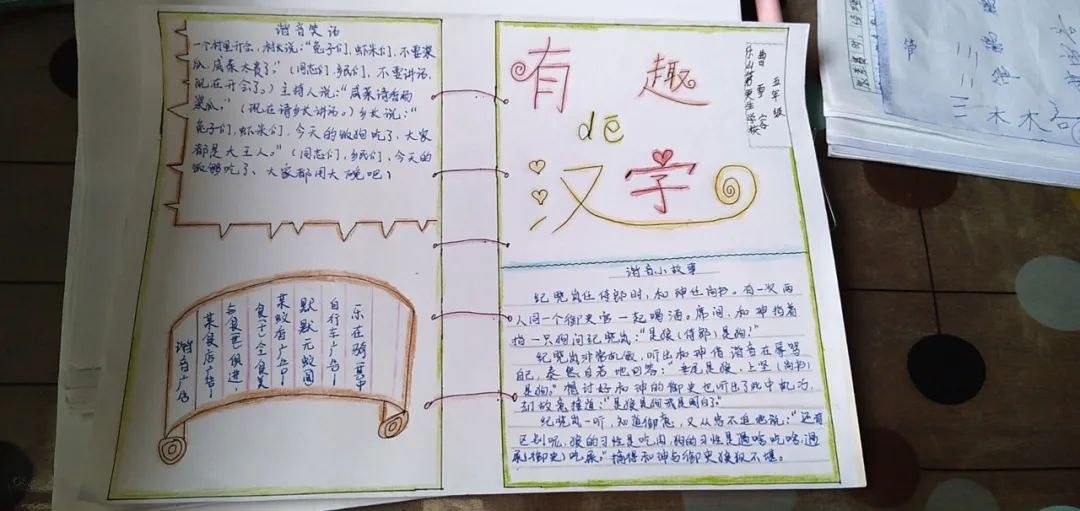 谐音笑话
一个村里开会，村长说：“兔子们，虾米们，不要酱
瓜，咸菜太贵了。”（同志们，乡民们，不要讲话，
现在开会了。）主持人说：“咸菜请香肠
酱瓜。”（现在请乡长讲话。）乡长说：“
兔子们，虾米们，今天的饭狗吃了，大家
都是大王八。”（同志们，乡民们，今天的
饭够吃了，大家都用大碗吧）
谐音广告
某食店广告：
与食俱进，
食十全食美
某蚊香广告：
默默无蚊
自行车广告：
乐在骑其中
有趣
dē
汉字
五年级
曹
乐山第更生学校
谐音小故事
纪晓岚任侍郎时，和珅任尚书。有一次两
人同一个御史官一起喝酒。席间，和珅指着
一只狗问纪晓岚：“是狼（侍郎）是狗？”
纪晓岚非常机敏，听出和珅借谐音在辱骂
自己，泰然自若地回答：“垂尾是狼，上竖（尚书）
是狗。”想讨好和珅的御史也听出了此中
却故意
纪晓岚一听，知道御意，又从容不迫地说：“还有
区别呢，狼的习性是吃肉，狗的习性是遇啥吃啥，遇
屎（御史）吃屎。”搞得和珅与御史狼狈不堪。